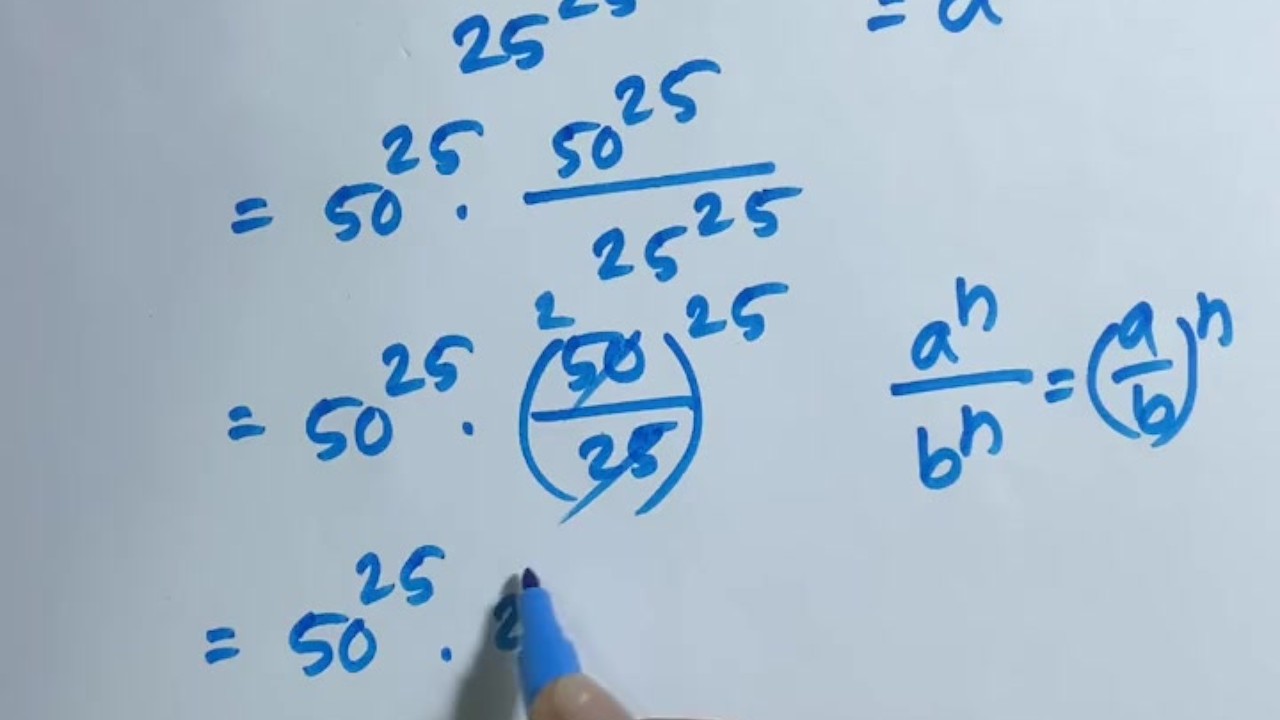 25²⁵ = a
= 50²⁵ · 50²⁵ / 25²⁵
= 50²⁵ · (50/25)²⁵ 2 aⁿ/bⁿ = (a/b)ⁿ
= 50²⁵ · 2